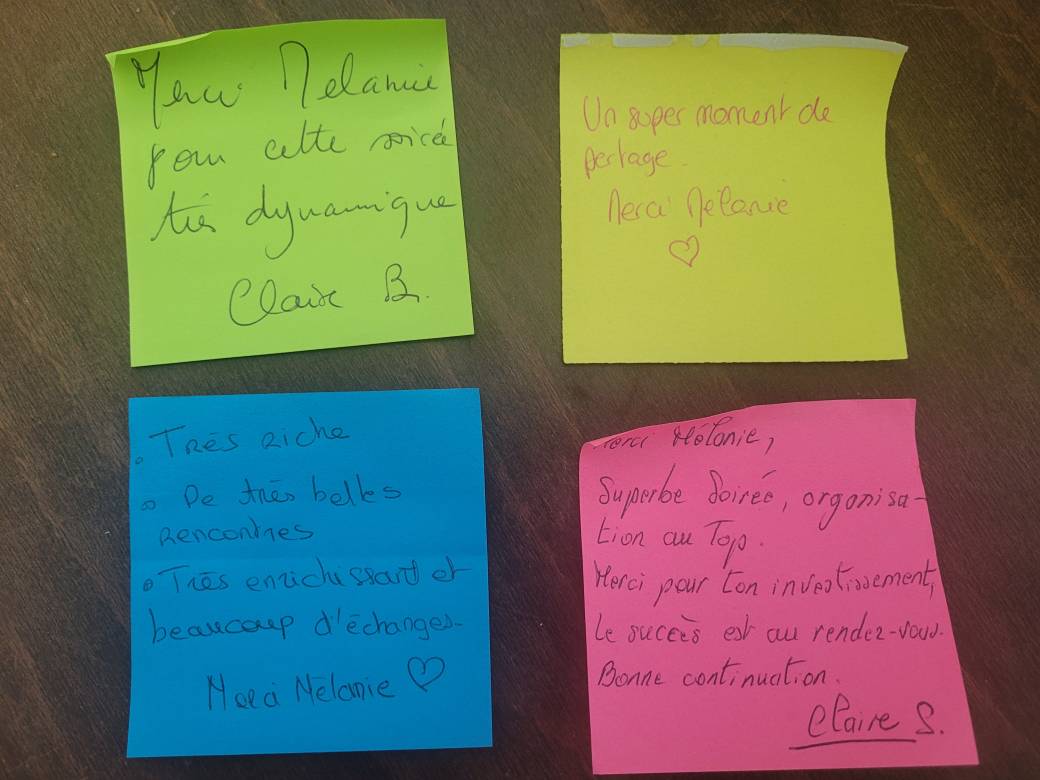 Merci Melanie
pour cette soirée
très dynamique
Claire B.
Un super moment de
partage.
Merci Mélanie
♡
. Très riche
. De très belles
rencontres
. Très enrichissant et
beaucoup d'échanges.
Merci Mélanie ♡
Merci Mélanie,
Superbe Soirée, organisa-
tion au Top.
Merci pour ton investissement,
Le succès est au rendez-vous.
Bonne continuation.
Claire S.